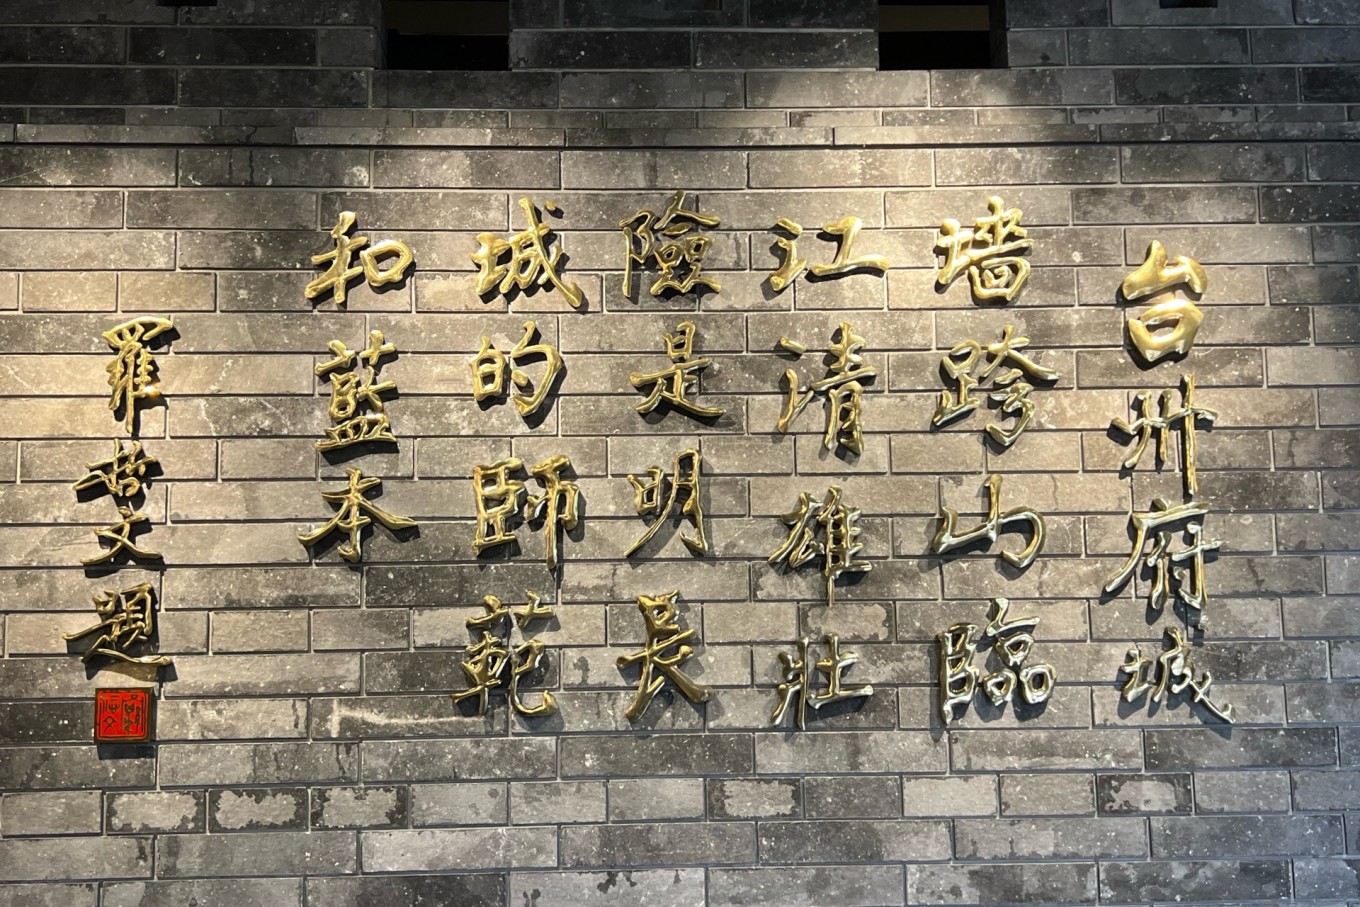 台州府城
墙跨山臨
江清雄壯
險是明長
城的師範
和藍本
羅哲文題